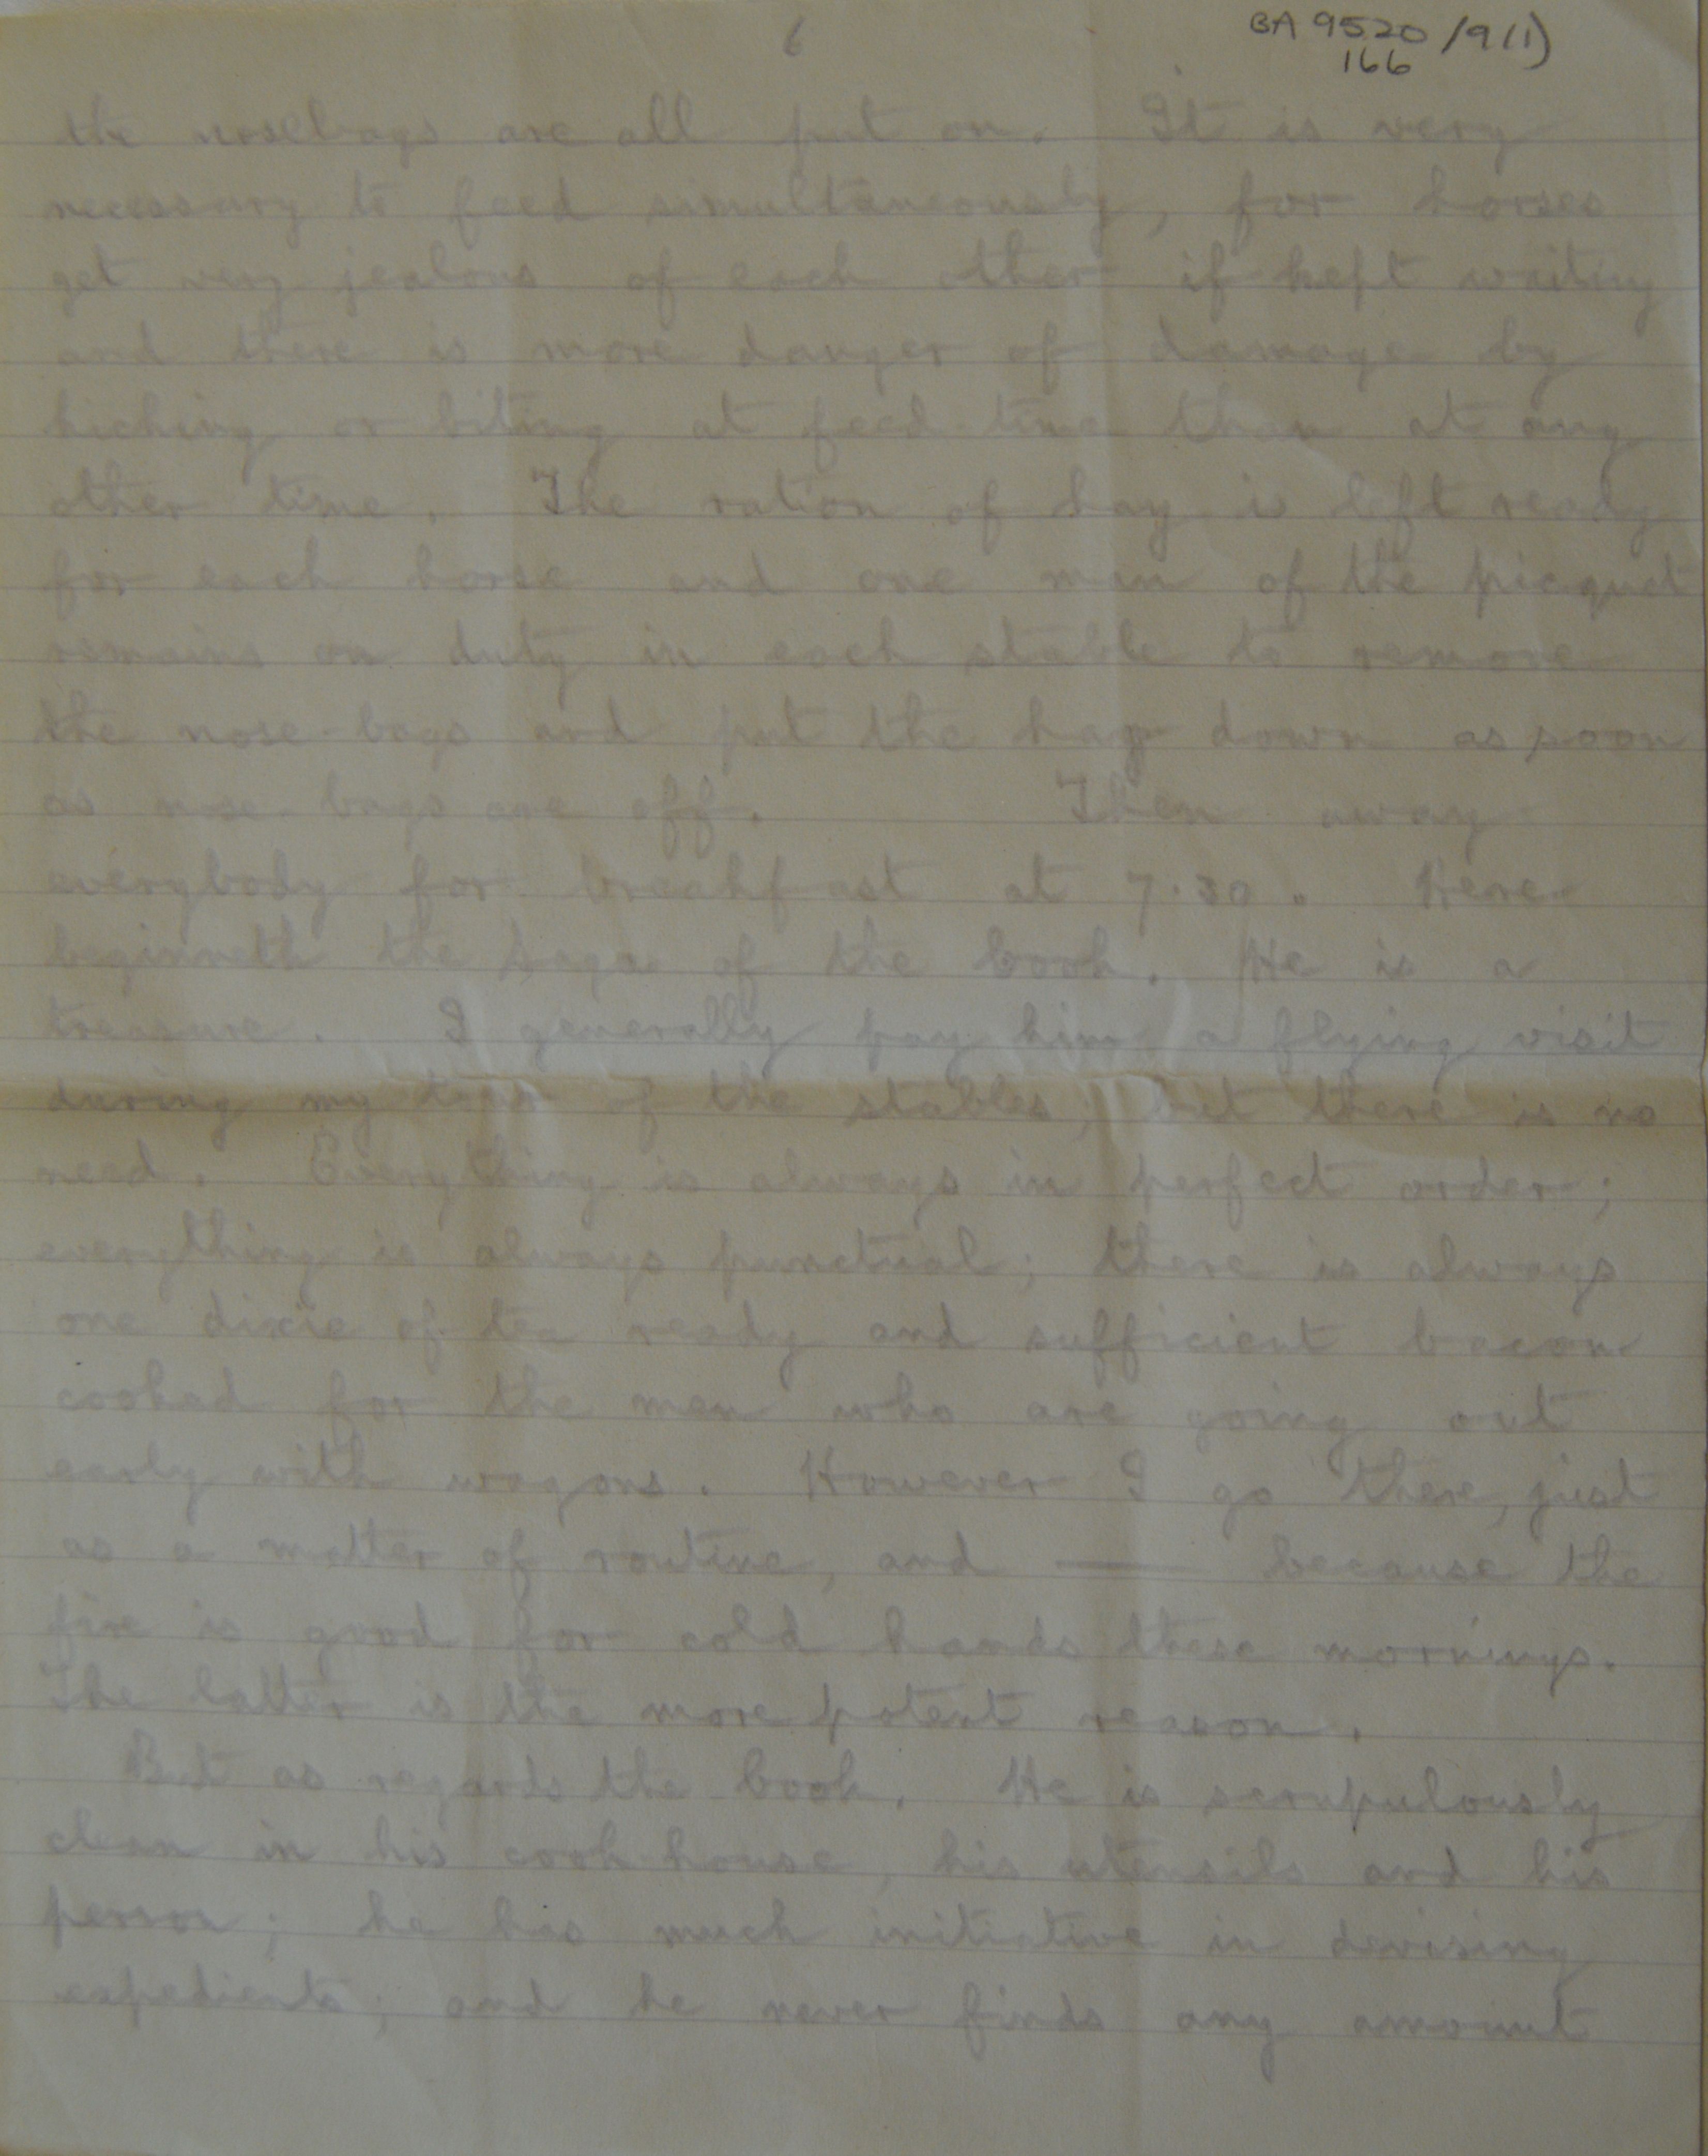 6
BA 9520/9(1)
166
the nosebags are all put on. It is very
necessary to feed simultaneously, for horses
get very jealous of each other if kept waiting
and there is more danger of damage by
kicking or biting at feed time than at any
other time. The ration of hay is left ready
for each horse and one man of the picquet
remains on duty in each stable to remove
the nose-bags and put the hay down as soon
as nose-bags are off. Then away
everybody for breakfast at 7.30. Here
beginneth the Saga of the Cook. He is a
treasure. I generally pay him a flying visit
during my tour of the stables; but there is no
need. Everything is always in perfect order;
everything is always punctual; there is always
one dixie of tea ready and sufficient bacon
cooked for the men who are going out
early with wagons. However I go there, just
as a matter of routine, and —— because the
fire is good for cold hands these mornings.
The latter is the more potent reason.
But as regards the Cook. He is scrupulously
clean in his cook-house, his utensils and his
person; he has much initiative in devising
expedients; and he never finds any amount